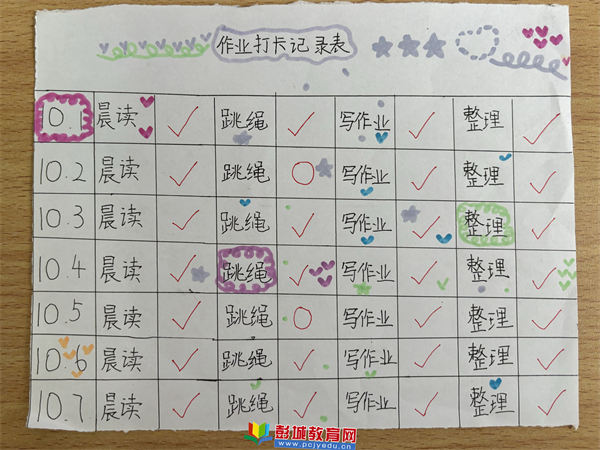 作业打卡记录表
10.1 晨读 ✓ 跳绳 ✓ 写作业 ✓ 整理 ✓
10.2 晨读 ✓ 跳绳 ○ 写作业 ✓ 整理 ✓
10.3 晨读 ✓ 跳绳 ✓ 写作业 ✓ 整理 ✓
10.4 晨读 ✓ 跳绳 ✓ 写作业 ✓ 整理 ✓
10.5 晨读 ✓ 跳绳 ○ 写作业 ✓ 整理 ✓
10.6 晨读 ✓ 跳绳 ✓ 写作业 ✓ 整理 ✓
10.7 晨读 ✓ 跳绳 ✓ 写作业 ✓ 整理 ✓
彭城教育网
www.pcjyedu.cn